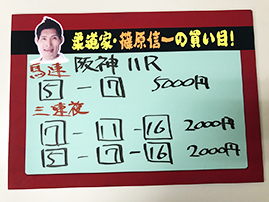 柔道家・篠原信一の買い目!
馬連 阪神 11R
5 - 7 5000円
三連複
7 - 11 - 16 2000円
5 - 7 - 16 2000円